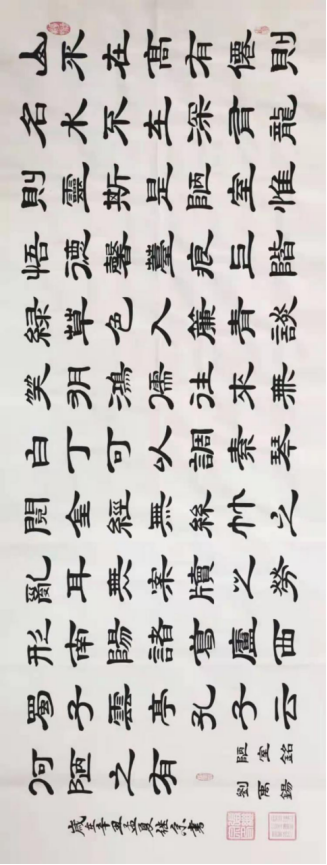 山不在高有僊則
名水不在深有龍
則靈斯是陋室惟
吾德馨薹痕上階
緑草色入簾青談
笑有鴻儒往來無
白丁可以調素琴
閱金經無絲竹之
亂耳無案牘之勞
形南陽諸葛廬西
蜀子雲亭孔子云
何陋之有
陋室銘
劉禹錫
歲在辛丑孟夏